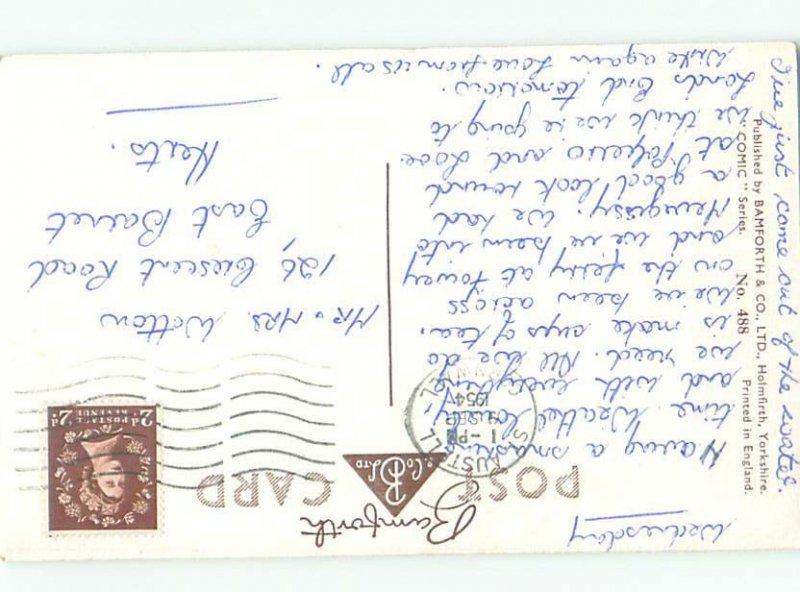 Bamforth
& Co Ltd
POST CARD
Wednesday
Having a smashing
time. Weather lovely,
and with everything
we need. All we do
is make cups of tea.
We've been across
on the ferry at Fowey
and we've been into
Mevagissy. We had
a good look round
at Polperro and Looe.
We think we're going to
Lands End tomorrow.
Write again Love from us all.
I've just come out of the water.
Published by BAMFORTH & CO., LTD., Holmfirth, Yorkshire.
"COMIC" Series. No. 488 Printed in England.
ST AUSTELL
1 - PM
SEP
1954
CORNWALL
2d POSTAGE 2d
REVENUE
Mr & Mrs. Wotton
126, Crescent Road
East Barnet
Herts.